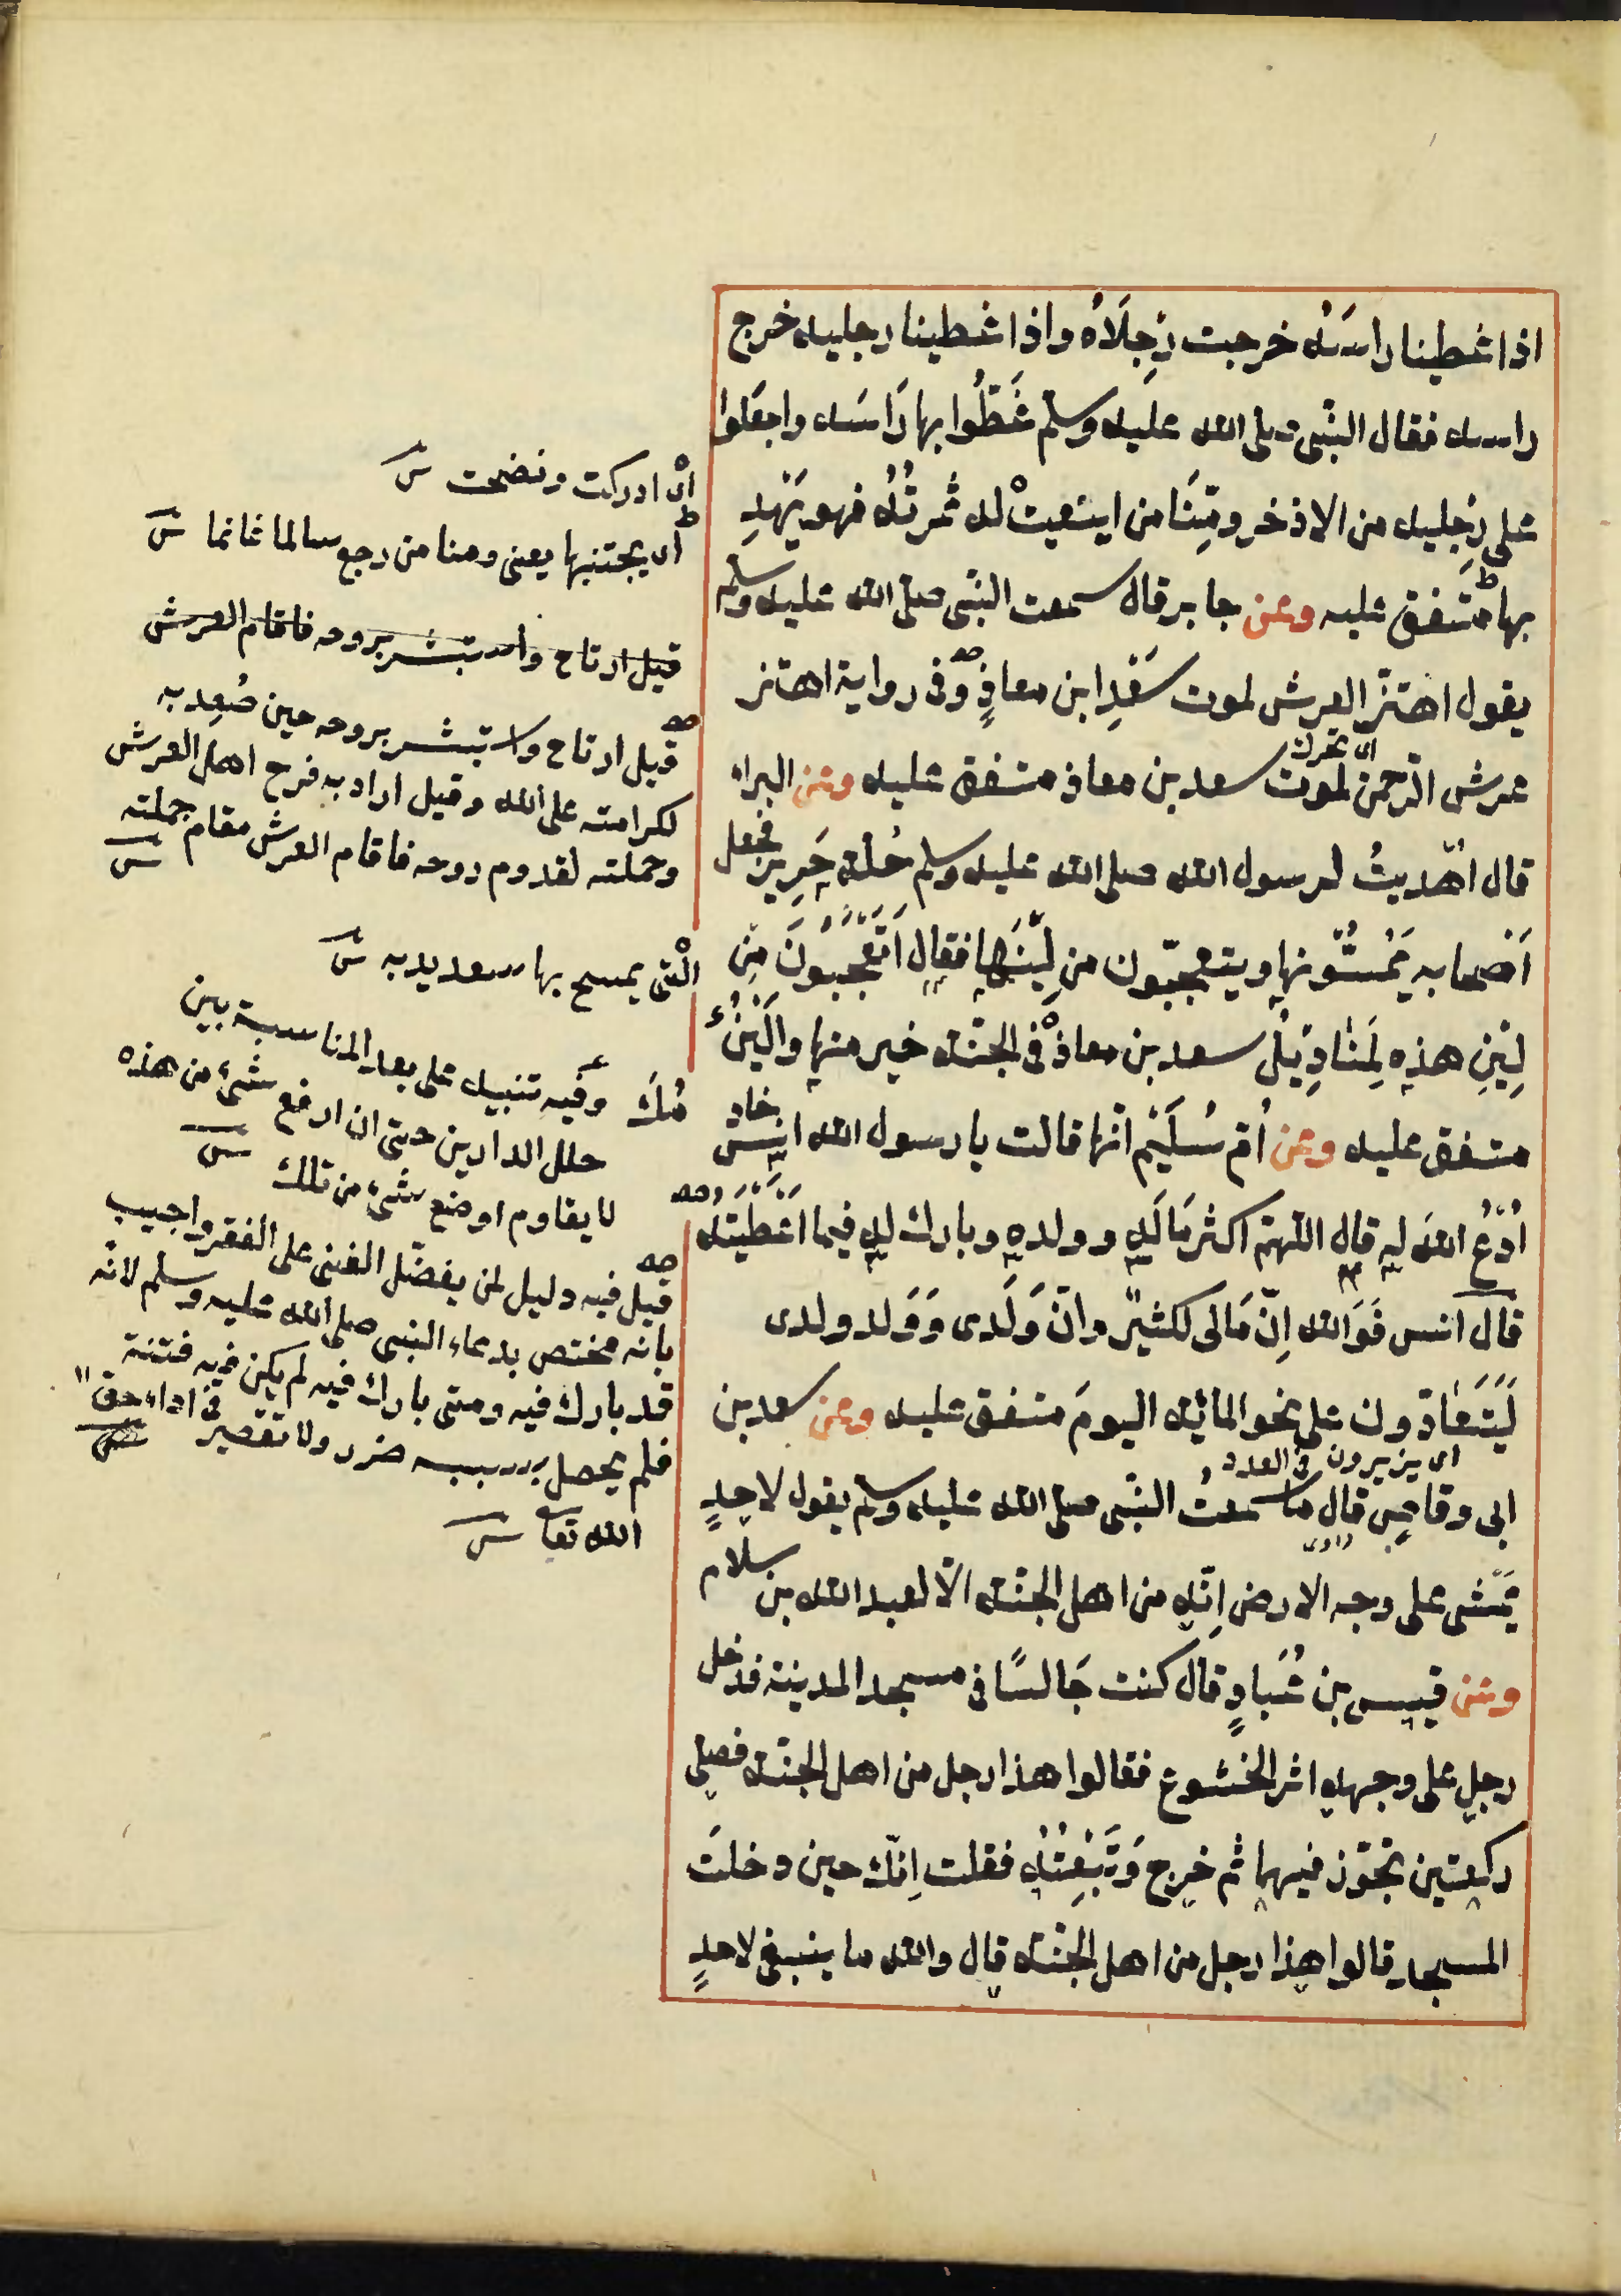 اذا غطينا راسَهُ خرجت رِجلَاهُ واذا غطينا رجليه خرج
راسه فقال النبّى صلى الله عليه وسلم غَطُّوا بها رَاسَه واجعَلوا
على رِجليه من الاذخر ومِنَّا من اينعتْ له ثمرتُهُ فهو يَهْدِ
بها متفق عليه وعن جابر قال سمعت النبّى صلى الله عليه وسلم
يقول اهتزّ العرش لموت سَعْدِ ابن معاذٍ وفى رواية اهتز
عرش الرّحمن لموت سعد بن معاذ متفق عليه وعن البراء
اى تحرك
قال اُهْديتُ لرسول الله صلى الله عليه وسلم حُلّة حَرِير فجعل
اَصْحابه يَمُسّونها ويتعجّبون من لِيْنِها فقال اَتَعْجَبُونَ مِن
لِيْنِ هذه لَمَنَادِيْلُ سعد بن معاذْ فى الجنّة خير منها واَلْيَنُ
متفق عليه وعن اُمّ سُلَيْم انّها قالت يا رسول الله انس خاد
اُدْعُ الله له قال اللّهمّ اكثر مَالَه وولده وبارك له فيما اَعْطَيْتَهُ
قال انس فَوَالله اِنّ مَالى لكثيرٌ وانّ وَلَدى وَوَلد ولدى
لَيَتَعَادّون على نحو المائة اليومَ متفق عليه وعن سعد بن
اى يزيرون فى العدد
ابى وقاص قال ما سمعتُ النبّى صلى الله عليه وسلم يقول لاحدٍ
يَمْشى على وجه الارض اِنّه من اهل الجنّة الّا لعبد الله بن سلام
وعن قيس بن عُبَادٍ قال كنت جَالسًا فى مسجد المدينة فدخل
رجل على وجهه اثر الخشوع فقالوا هذا رجل من اهل الجنّة فصلى
ركعتين تجوّز فيهما ثم خرج وَتَبِعْتُهُ فقلت اِنّك حين دخلتَ
المسجد قالوا هذا رجل من اهل الجنّة قال والله ما ينبغى لاحدٍ
اىْ ادركت ونضجت ش
اى يجتنيها يعنى ومنا من رجع سالما غانما ش
قيل ارتاح واستبشر بروحه فاقام العرش
قيل ارتاح واستبشر بروحه حين صُعِد به
لكرامته على الله وقيل اراد به فرح اهل العرش
وحملته لقدوم روحه فاقام العرش مقام حملته ش
الّتى يمسح بها سعد يديه ش
مُكَ وفيه تنبيه على بعد المناسبة بين
حلل الدارين حتى ان ارفع شئ من هذه
لا يقاوم اوضع شئ من تلك ش
قيل فيه دليل لمن يفضّل الغنى على الفقر واجيب
بانه مختص بدعاء النبى صلى الله عليه وسلم لانّه
قد بارك فيه ومتى بارك فيه لم يكن فيه فتنة
فلم يحصل بسببه ضرر ولا تقصير فى اداء حق
الله تعا ش